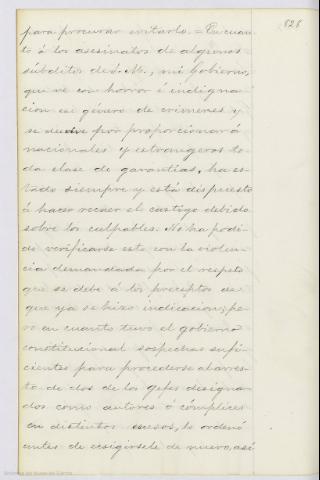 828
para procurar evitarlo. En cuan
to á los asesinatos de algunos
súbditos de S. M., mi Gobierno,
que vé con horror é indigna
cion ese género de crimenes y
se desvive por proporcionar á
nacionales y estrangeros to
da clase de garantías, ha es
tado siempre y está dispuesto
á hacer recaer el castigo debido
sobre los culpables. No ha podi
do verificarse esto con la violen
cia demandada por el respeto
que se debe á los preceptos de
que ya se hizo indicacion; pe
ro en cuanto tuvo el gobierno
constitucional sospechas sufi
cientes para procederse al arres
to de dos de los gefes designa
dos como autores ó cómplices
en distintos sucesos, lo ordenó
antes de ecsigirsele de nuevo, así